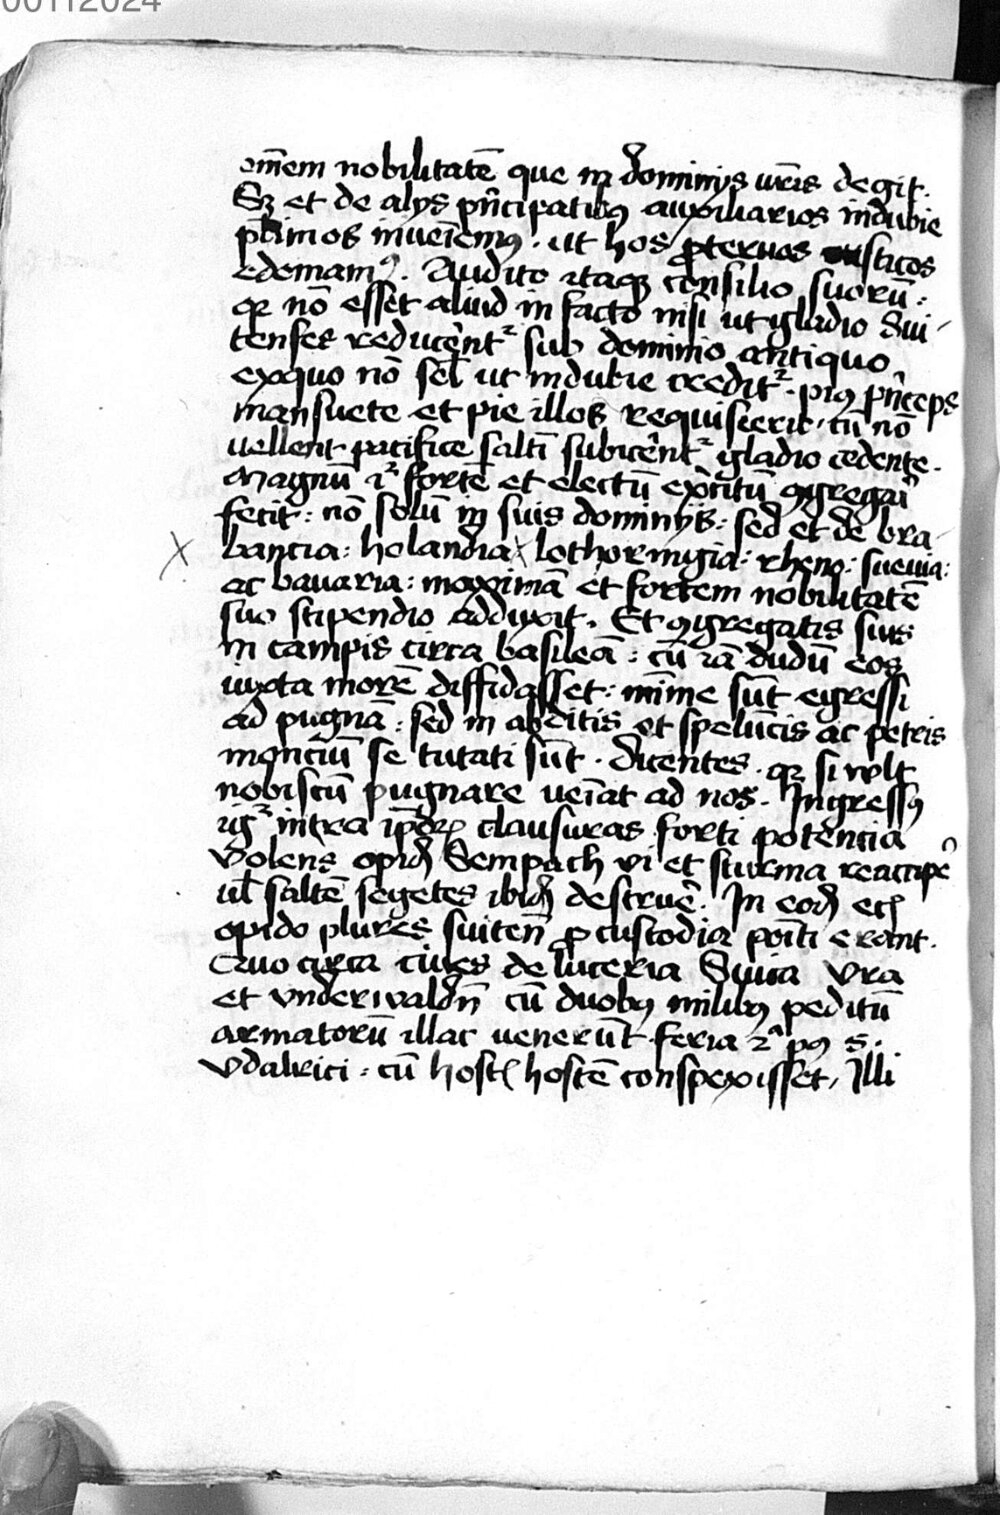 00112024
om̄em nobilitatē que in dominijs vr̄is degit.
Sꝫ et de alijs pn̄cipatibꝰ auxiliarios indubie
pl̄imos inueīemꝰ. ut hos ꝓteruos rusticos
edomamꝰ. Audito itaqꝫ consilio suorū:
qꝫ nō esset aliud in facto nisi ut gladio Sui-
tenses reducēnt᷑ sub dominio antiquo
exquo nō sel̄ ut indubie credit᷑. piꝰ pn̄ceps
mansuete et pie illos requisierit, cū nō
uellent pacifice saltī subicēnt᷑ gladio cedente.
Magnū ⁊ fortē et electū exc̄itū ꝯgregari
fecit: nō solū in suis dominijs: sed et de bra-
bancia: holandia x lothoringia: rheno: sueuia:
ac bauaria: maximā et fortem nobilitatē
suo stipendio adduxit. Et ꝯgregatis suis
in campis circa basileā: cū iā dudū eos
iuxta morē diffidasset: mīme sūt egressi
ad pugnā: sed in abditis et spelūcis ac petris
monciū se tutati sūt. dicentes. qꝫ si vult
nobiscū pugnare ueīat ad nos. Ingressꝰ
ig᷑ intra ip̄oꝝ clausuras forti potencia
Volens opidū Sempach vi et sturma reaccipē
ul̄ saltē segetes ibidē destruē. In eodē eciā
opido plures suiten̄ ꝓ custodia poīti erant.
Quo circa ciues de luceria Suita Vra
et Vnderwaldn̄ cū duobꝰ milibꝰ peditū
armatorū illac uenerūt feria 2ᵃ pꝰ s.
Vdalrici: cū hostis hostē conspexisset, Illi